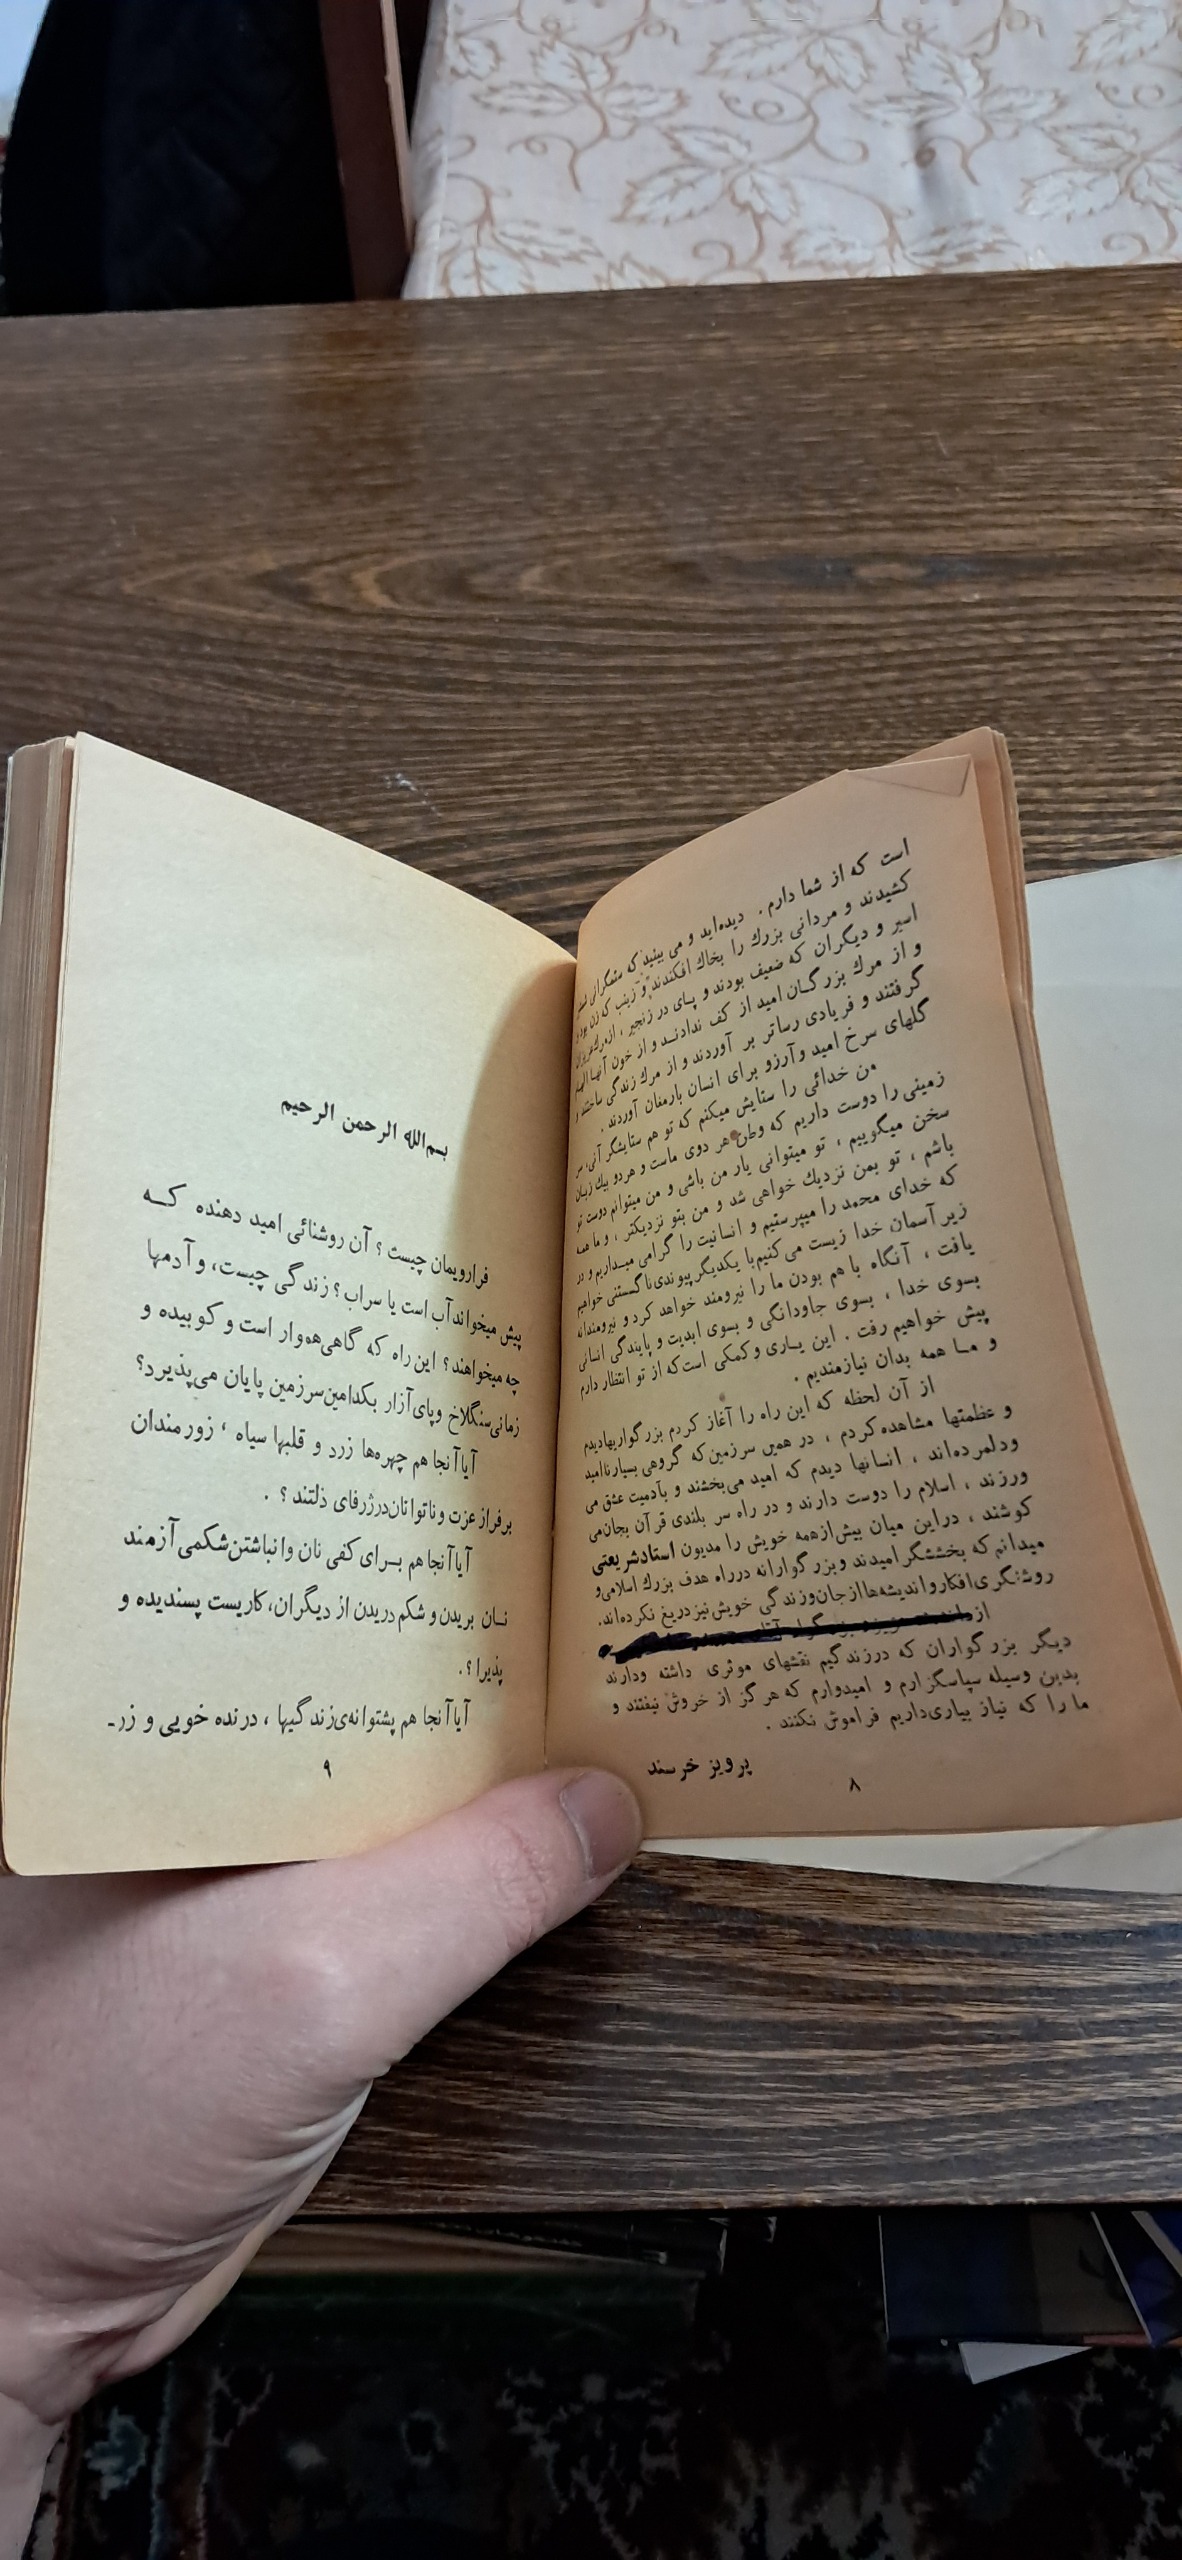 است که از شما دارم . دیده‌اید و می بینید که ستمگرانی
کشیدند و مردانی بزرك را بخاك افکندند و زینب که زن بود و
اسیر و دیگران که ضعیف بودند و پـای در زنجیر ، از مرك عزیزان
و از مرك بزرگـان امید از کف ندادنـد و از خون آنهـا الهـام
گرفتند و فریادی رساتر بر آوردند و از مرك زندگی ساختند و
گلهای سرخ امید و آرزو برای انسان بارمغان آوردند .
من خدائی را ستایش میکنم که تو هم ستایشگر آنی، سر
زمینی را دوست داریم که وطن هر دوی ماست و هردو بیك زبـان
سخن میگوییم ، تو میتوانی یار من باشی و من میتوانم دوست تو
باشم ، تو بمن نزدیك خواهی شد و من بتو نزدیکتر ، و ما همه
که خدای محمد را میپرستیم و انسانیت را گرامی میـداریم و در
زیر آسمان خدا زیست می‌کنیم با یکدیگر پیوندی ناگسستنی خواهیم
یافت ، آنگاه با هم بودن ما را نیرومند خواهد کرد و نیرومندانه
بسوی خدا ، بسوی جاودانگی و بسوی ابدیت و پایندگی انسانی
پیش خواهیم رفت . این یـاری و کمکی است که از تو انتظار دارم
و مـا همه بدان نیازمندیم .
از آن لحظه که این راه را آغاز کردم بزرگواریها دیدم
و عظمتها مشاهده کردم ، در همین سرزمین که گروهی بسیار ناامید
و دلمرده‌اند ، انسانها دیدم که امید می‌بخشند و بآدمیت عشق می
ورزند ، اسلام را دوست دارند و در راه سر بلندی قرآن بجان می
کوشند ، دراین میان بیش‌ازهمه خویش را مدیون استادشریعتی
میدانم که بخششگر امیدند و بزرگوارانه درراه هدف بزرك اسلامی و
روشنگری افکار و اندیشه‌ها از جان و زندگی خویش نیز دریغ نکرده‌اند.
از
دیگر بزرگواران که درزندگیم نقشهای موثری داشته ودارند
بدین وسیله سپاسگزارم و امیدوارم که هرگز از خروش نیفتند و
ما را که نیاز بیاری داریم فراموش نکنند .
پرویز خرسند
۸
بسم‌الله الرحمن الرحیم
فرارویمان چیست ؟ آن روشنائی امید دهنده کـه
پیش میخواند آب است یا سراب؟ زندگی چیست، و آدمها
چه میخواهند؟ این راه که گاهی هموار است و کوبیده و
زمانی سنگلاخ و پای‌آزار بکدامین سرزمین پایان می‌پذیرد؟
آیاآنجا هم چهره‌ها زرد و قلبها سیاه ، زورمندان
برفراز عزت و ناتوانان درژرفای ذلتند ؟ .
آیاآنجا هم بـرای کفی نان و انباشتن شکمی آزمند
نـان بریدن و شکم دریدن از دیگران، کاریست پسندیده و
پذیرا ؟ .
آیاآنجا هم پشتوانه‌ی زندگیها ، درنده خویی و زرـ
۹